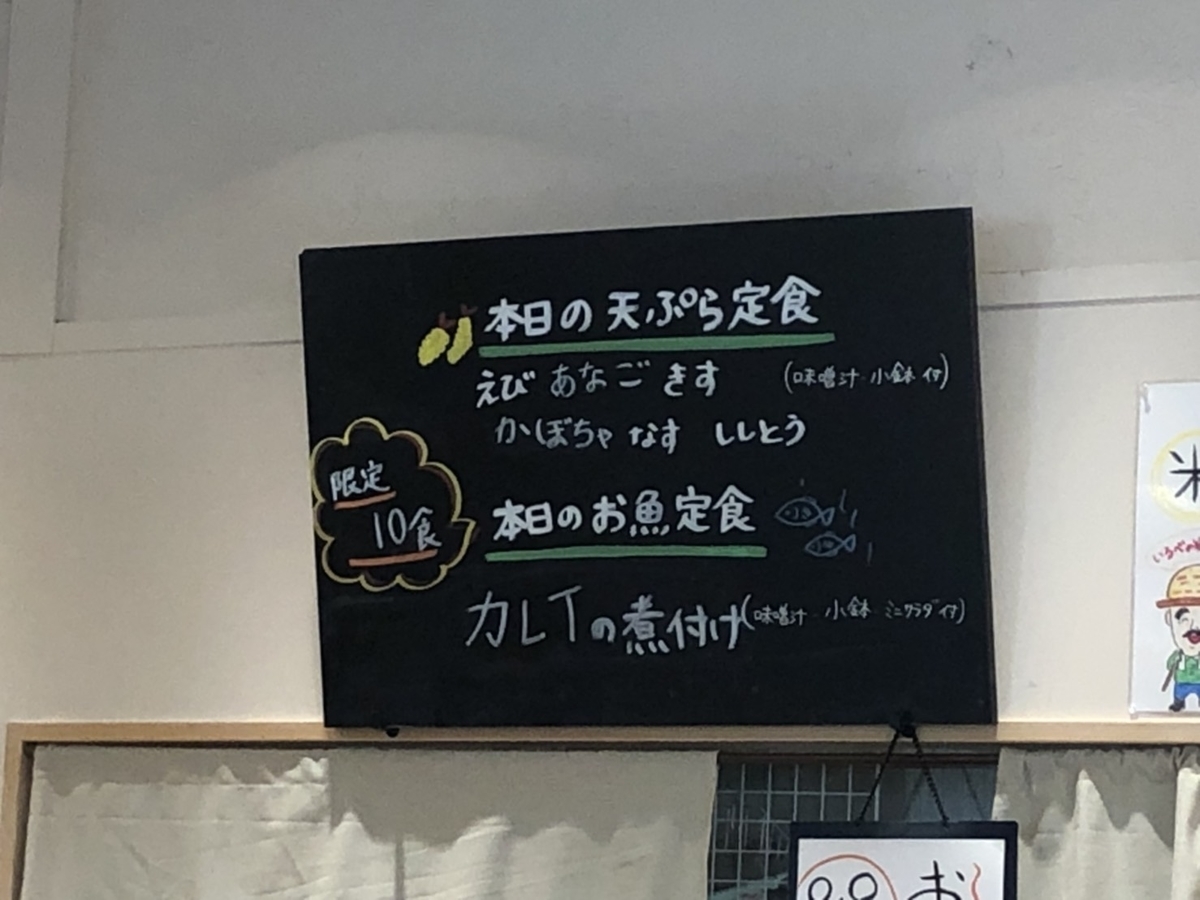 本日の天ぷら定食
えび あなご きす (味噌汁・小鉢付)
かぼちゃ なす ししとう
限定
10食
本日のお魚定食
カレイの煮付け(味噌汁・小鉢・ミニサラダ付)
米
お